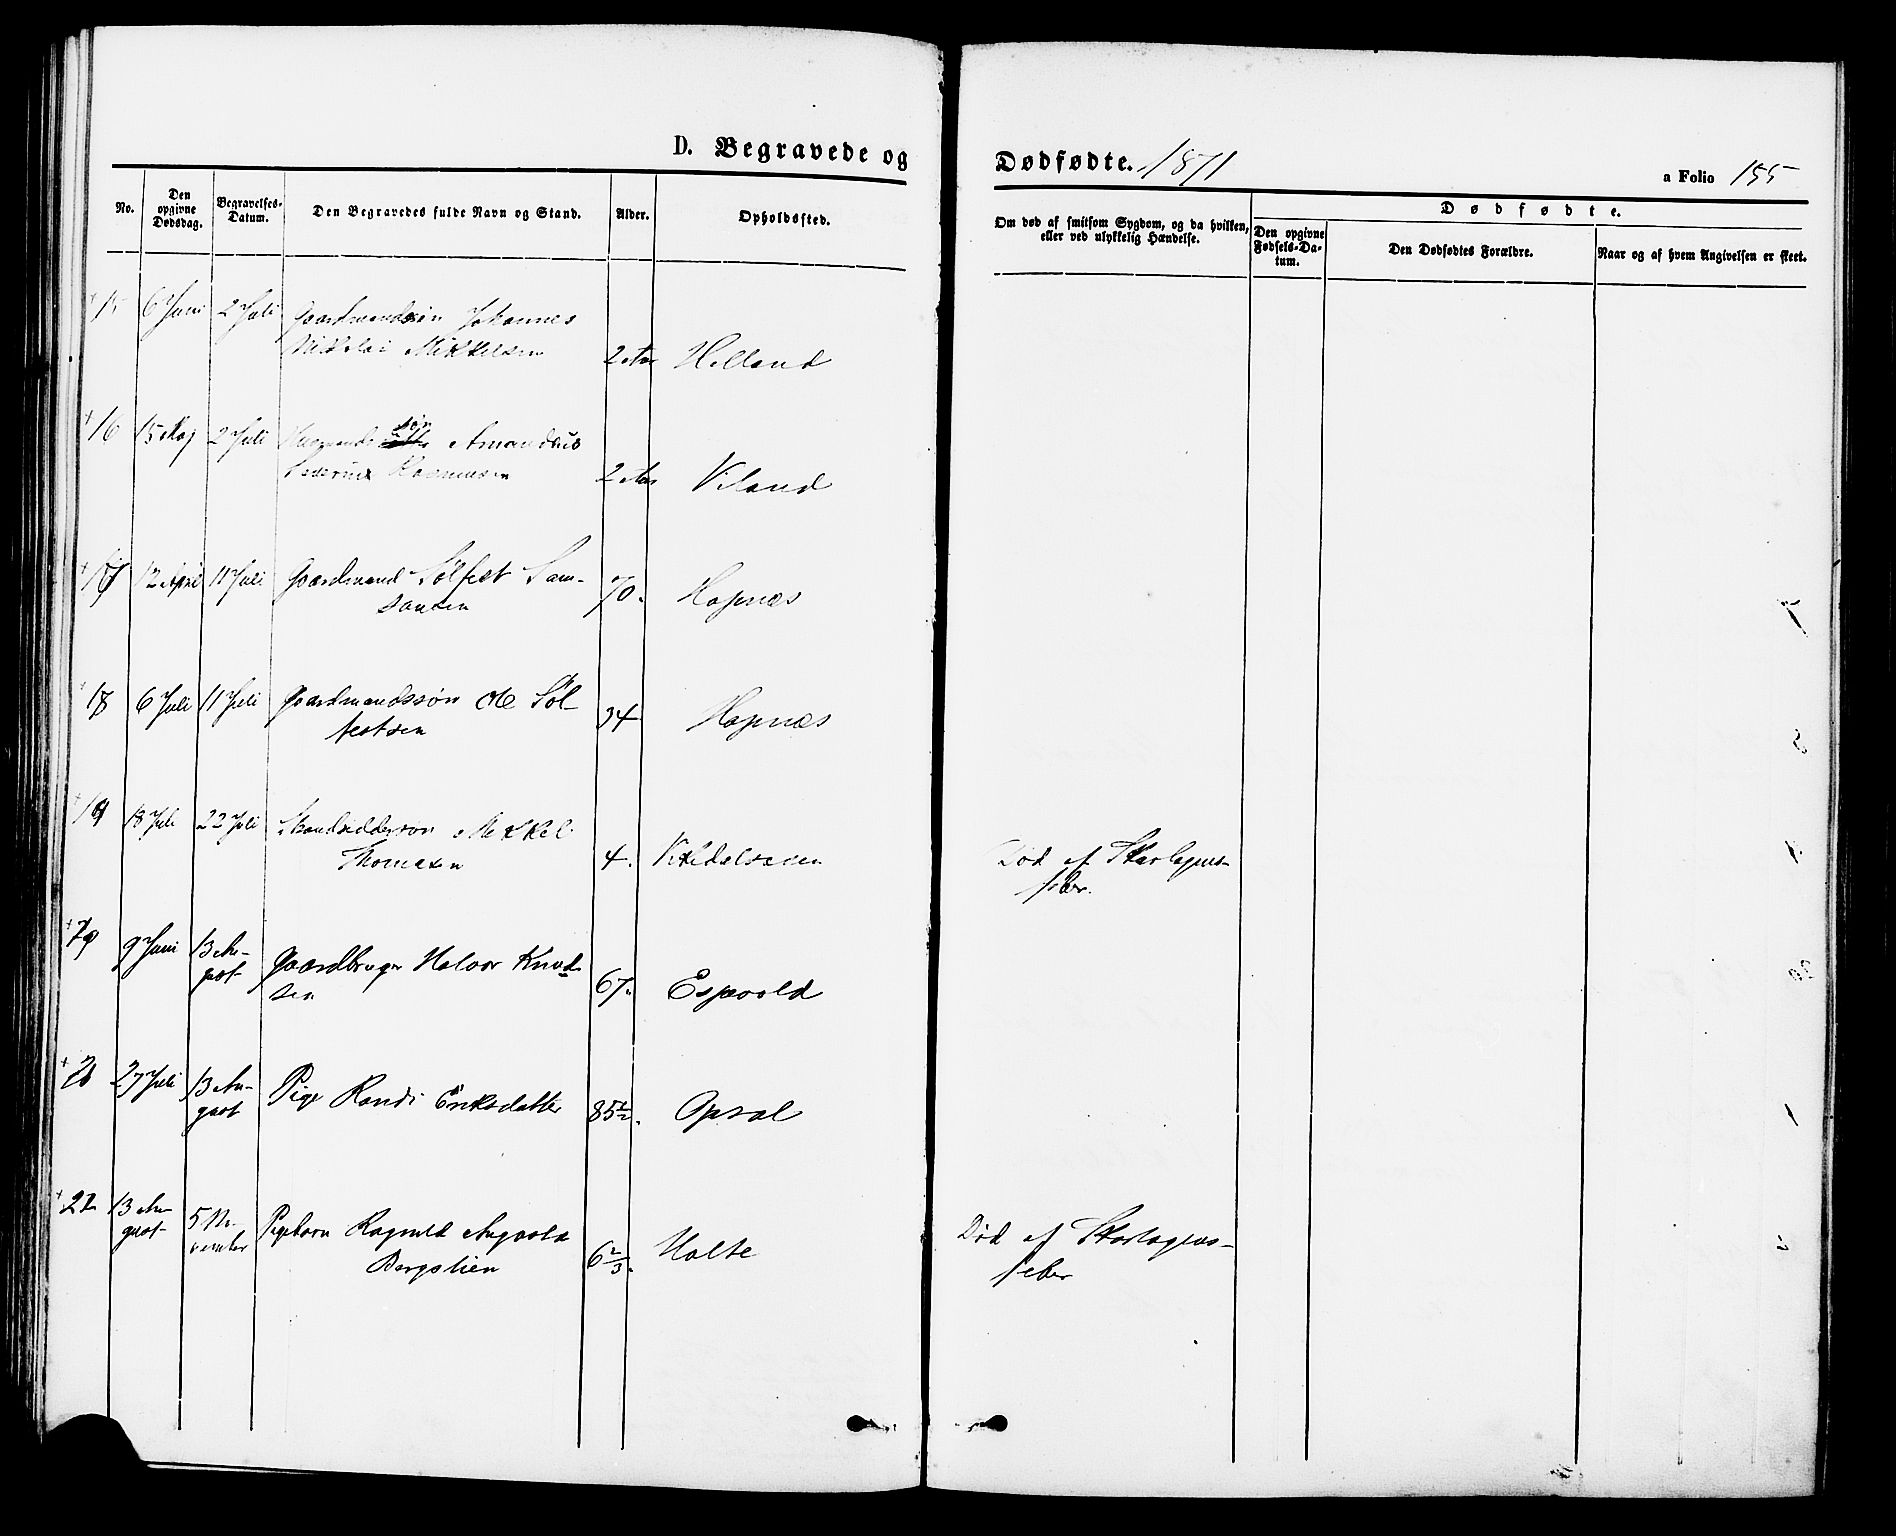 D. Begravede og Dødfødte. 1871
a Folio 155
No.
Den opgivne Dødsdag.
Begravelses-Datum.
Den Begravedes fulde Navn og Stand.
Alder.
Opholdssted.
Om død af smitsom Sygdom, og da hvilken, eller ved ulykkelig Hændelse.
Dødfødte.
Den opgivne Fødsels-Datum.
Den Dødfødtes Forældre.
Naar og af hvem Angivelsen er skeet.
15 6 Juni 2 Juli Gaardmandssøn Johannes
Nikolai Mikkelsen 2 Aar Helland
16 15 Maj 2 Juli Husmands søn Amandus
Severin Rasmussen 2 Aar Viland
17 12 April 11 Juli Gaardmand Sølfest Sam-
sonsen 70. Hopnæs
18 6 Juli 11 Juli Gaardmandssøn Ole Søl-
festsen 34 Hopnæs
19 18 Juli 22 Juli Strandsidderson Mikkel
Thomasen 4. Død af Skarlagens-
feber.
9 Juni 13 Au-
gust Gaardbruger Halvor Knud-
sen 67. Espevold
27 Juli 13 Au-
gust Pige Randi Eriksdatter 85½. Opsal
22 13 Au-
gust 5 No-
vember Pigebarn Ragnild Augusta
Bergslien 6⅔. Holte Død af Skarlagens-
feber